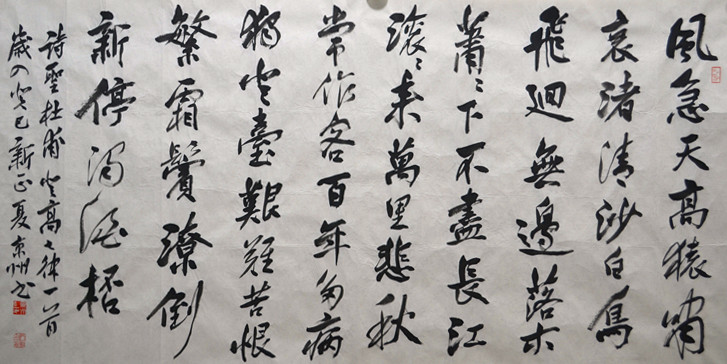 風急天高猿嘯
哀渚清沙白鳥
飛迴無邊落木
蕭〻下不盡長江
滾〻来萬里悲秋
常作客百年多病
獨登臺艱難苦恨
繁霜鬢潦倒
新停濁酒桮
詩聖杜甫登高七律一首
歲次癸巳新正夏京州书